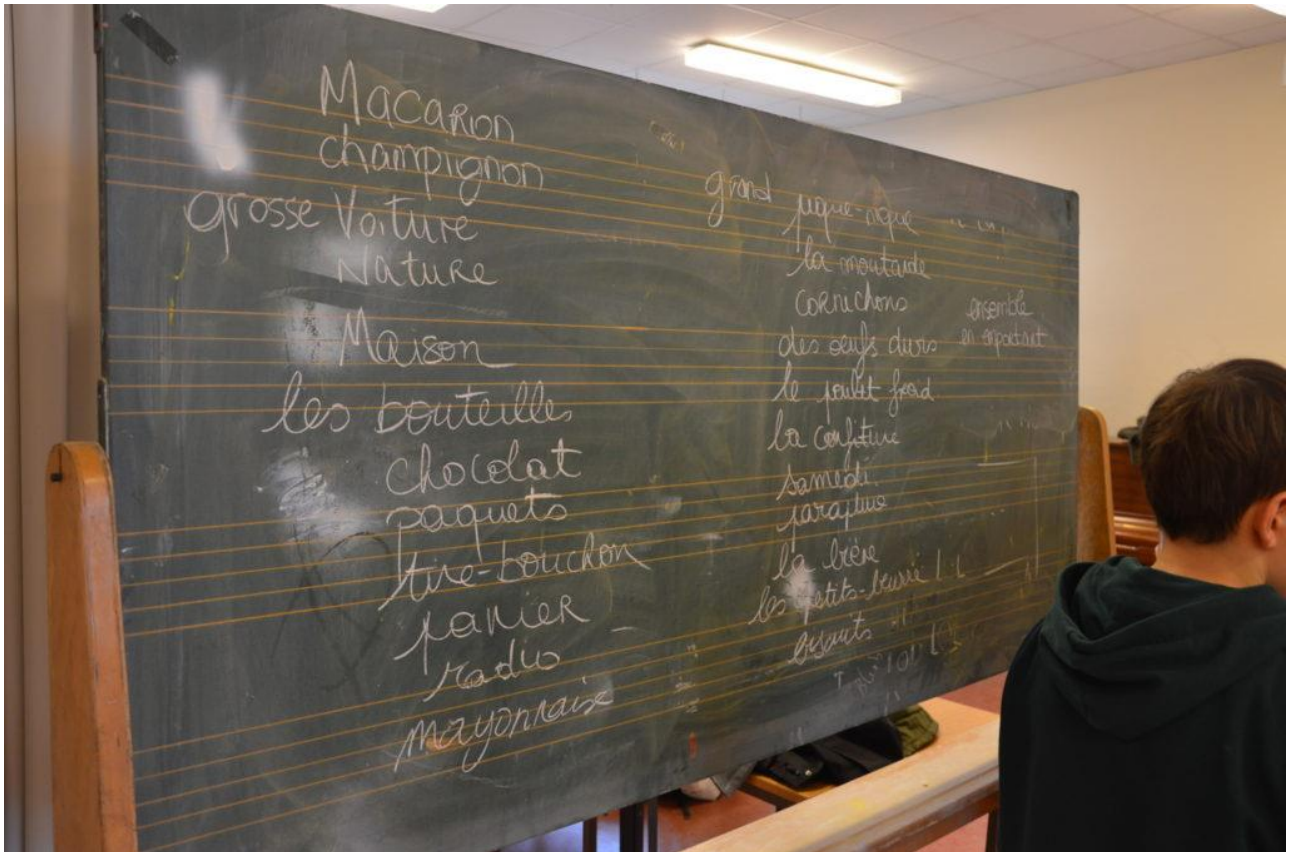 Macaron
champignon
grosse Voiture
Nature
Maison
les bouteilles
chocolat
paquets
tire-bouchon
panier
radio
mayonnaise
grand pique-nique
la moutarde
cornichons
des oeufs durs
le poulet froid
la confiture
samedi
parapluie
la bière
les petits-beurre
ensemble
en emportant